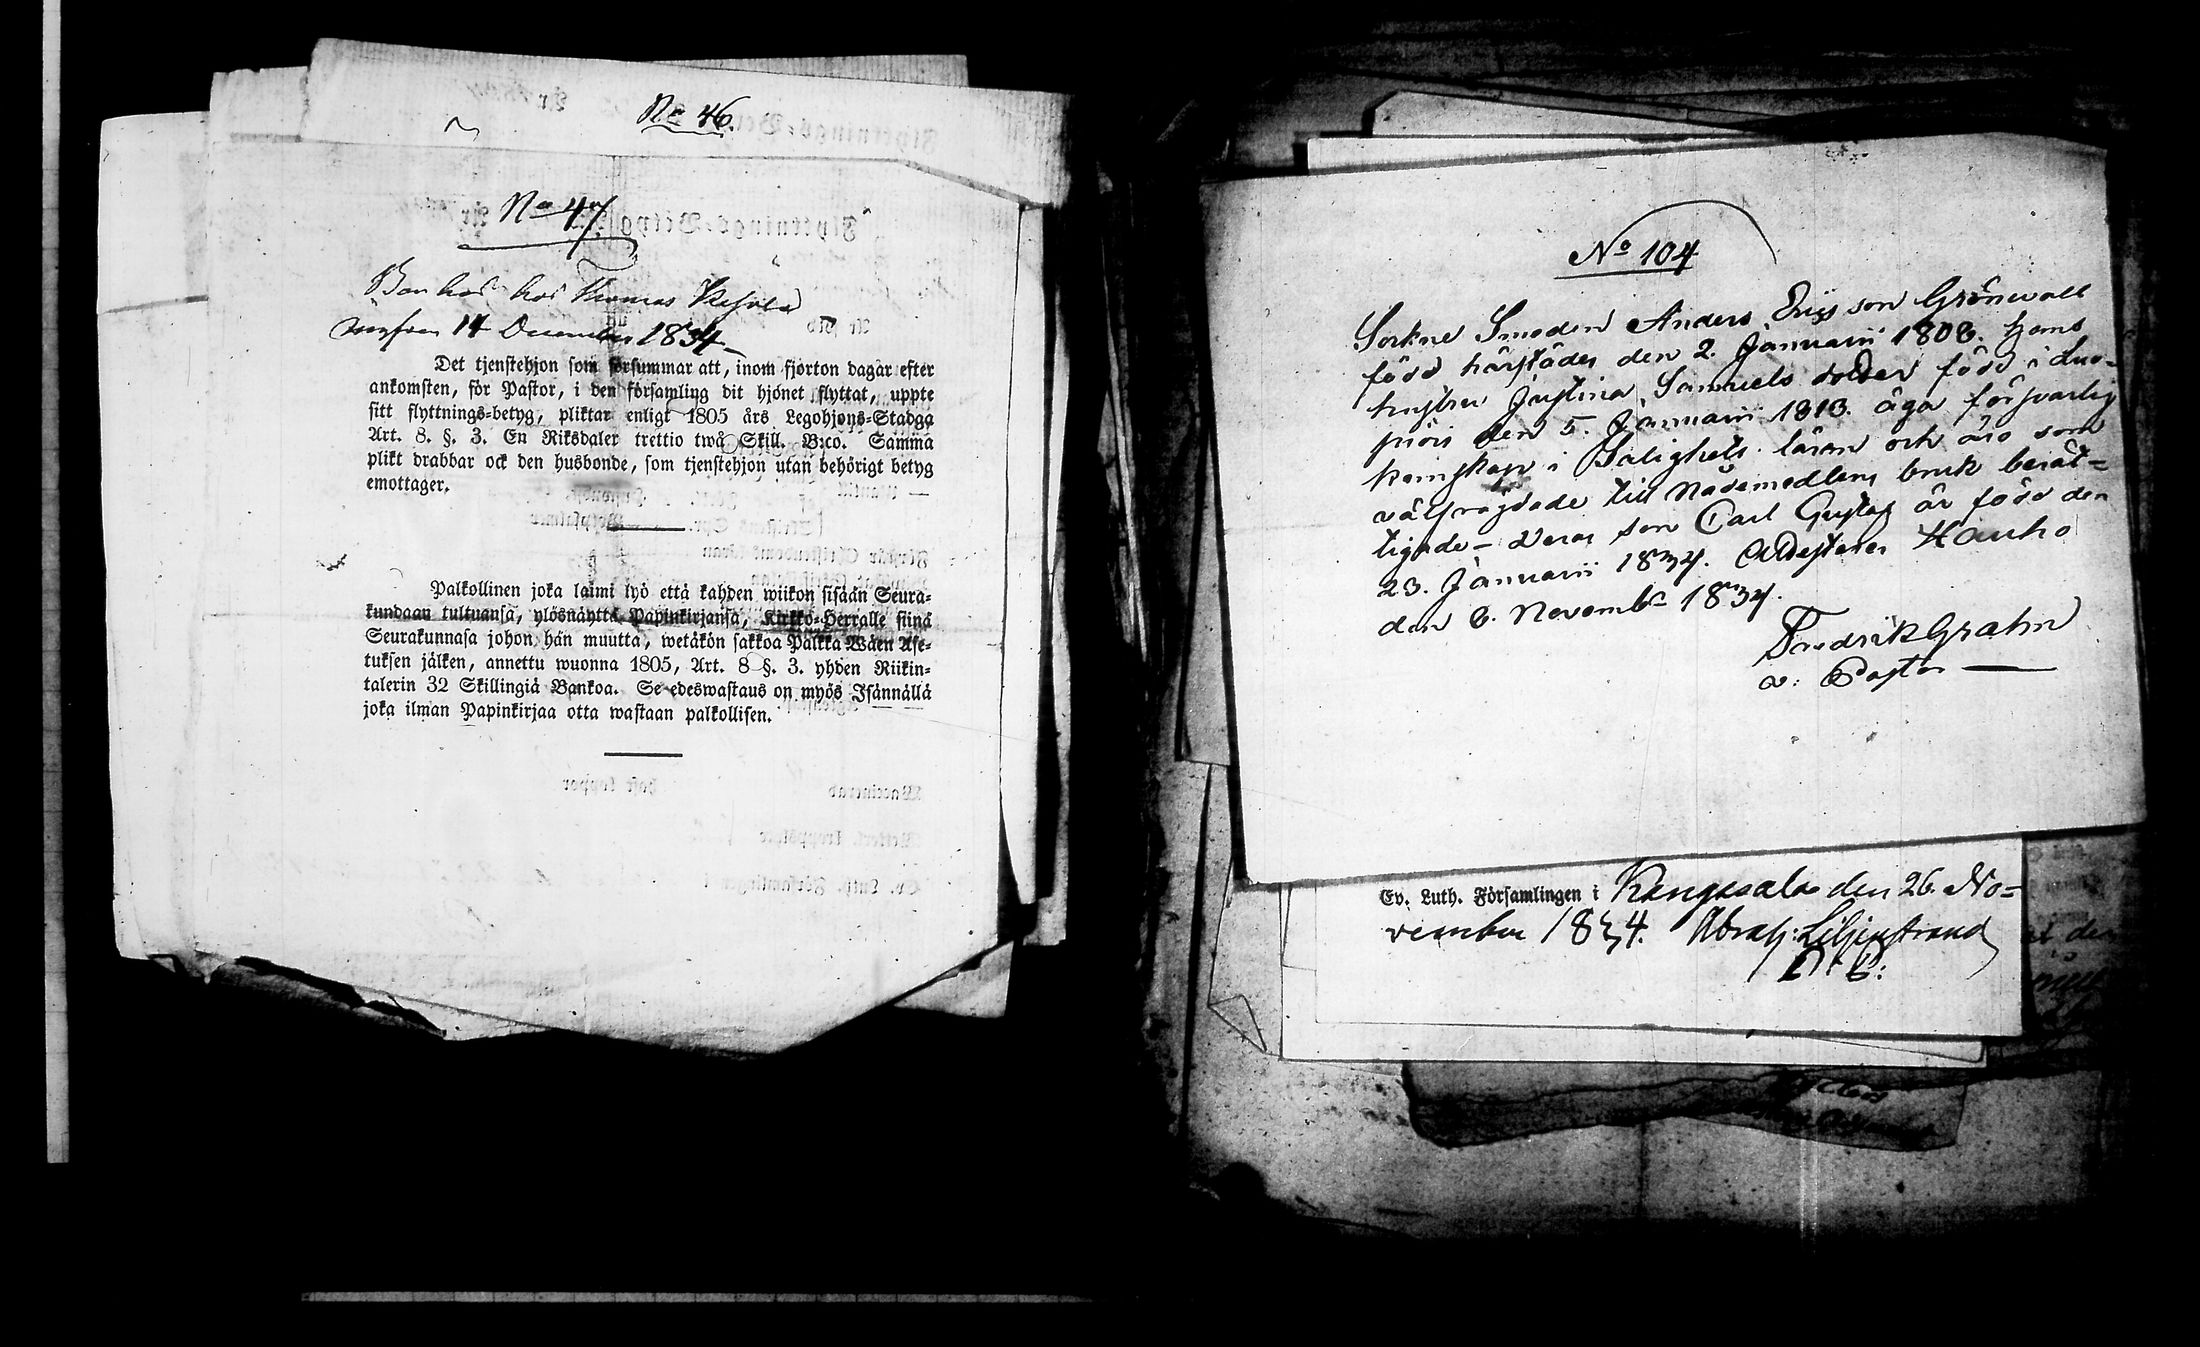 No 46.
No 47
hos Thomas
14 December 1834
Det tjenstehjon som försummar att, inom fjorton dagar efter
ankomsten, för Pastor, i den församling dit hjonet flyttat, uppte
sitt flyttnings-betyg, pliktar enligt 1805 års Legohjons-Stadga
Art. 8. §. 3. En Riksdaler trettio twå Skill. B:co. Samma
plikt drabbar ock den husbonde, som tjenstehjon utan behörigt betyg
emottager.
Palkollinen joka laimi lyö että kahden wiikon sisään Seura-
kundaan tultuansa, ylösnäyttä Papinkirjansa, Kirkko-Herralle siinä
Seurakunnasa johon hän muutta, wetäkön sakkoa Palkka Wäen Ase-
tuksen jälken, annettu wuonna 1805, Art. 8 §. 3. yhden Riikin-
talerin 32 Skillingiä Bankoa. Se edeswastaus on myös Isännällä
joka ilman Papinkirjaa otta wastaan palkollisen.
No 104
Sockne Smeden Anders Ericsson Grönwall
född härstädes den 2. Januarii 1808. Hans
hustru Justina Samuels dotter född i Luo-
piois den 5. Januarii 1813. äga försvarlig
kunskap i Salighets läran och äro som
välfrägdade till Nademedlens bruk berät-
tigade - Deras son Carl Gustaf är född den
23. Januarii 1834. Attesterar Hauho
den 6. Novembr 1834.
Fredrik Grahn
v: Pastor
Ev. Luth. Församlingen i Kangasala den 26. No-
vember 1834. Abrah: Liljenstrand